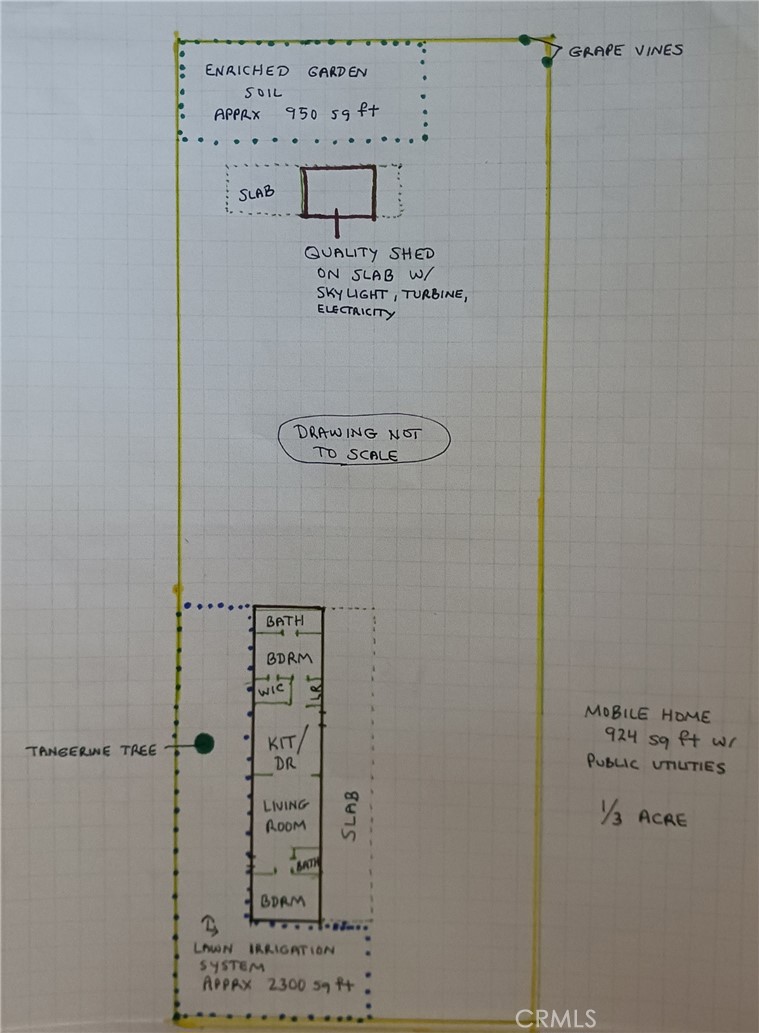 GRAPE VINES
ENRICHED GARDEN
SOIL
APPRX 950 sq ft
SLAB
QUALITY SHED
ON SLAB W/
SKYLIGHT, TURBINE,
ELECTRICITY
DRAWING NOT
TO SCALE
BATH
BDRM
WIC
LR
KIT/
DR
TANGERINE TREE
LIVING
ROOM
SLAB
BATH
BDRM
MOBILE HOME
924 sq ft w/
PUBLIC UTILITIES
1/3 ACRE
LAWN IRRIGATION
SYSTEM
APPRX 2300 sq ft
CRMLS